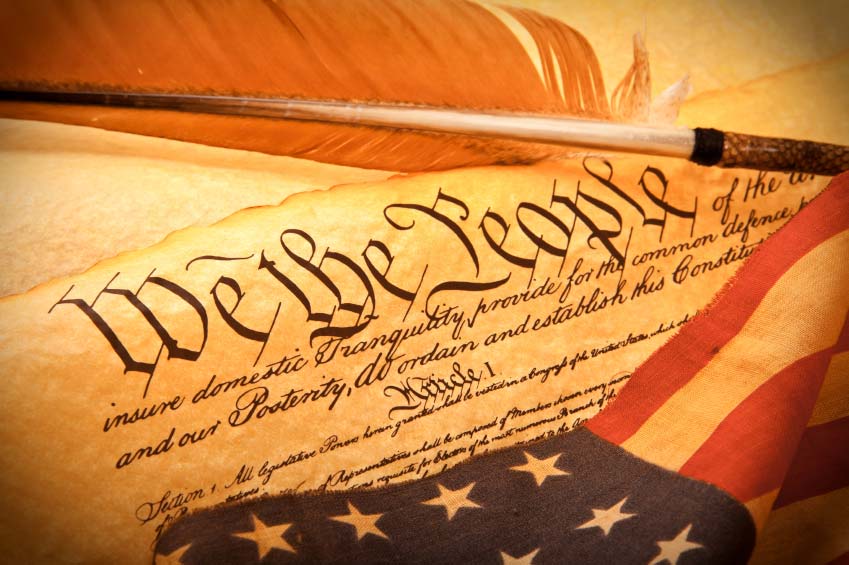 We the People of the
insure domestic Tranquility, provide for the common defence,
and our Posterity, do ordain and establish this
Article I
Section 1. All legislative Powers herein granted shall be vested in a Congress of the United States, which
of Representatives shall be composed of Members chosen every
requisite for Electors of the most numerous Branch of the